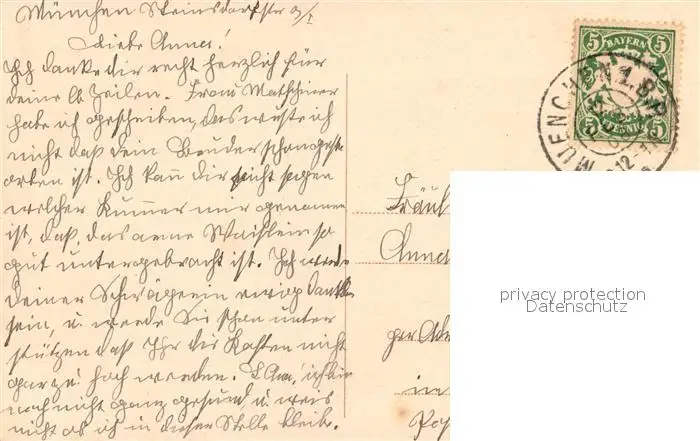 München Steinsdorfstr 9/I
Liebe Annes!
Ich danke dir recht herzlich für
deine lb Zeilen. Frau
habe ich geschrieben, das wuste ich
nicht daß dein Bruder schon gest
orben ist. Ich kann dir nicht sagen
welcher Kummer mir genomen
ist, daß, das arme Waislein so
gut untergebracht ist. Ich werde
deiner Schwägerin ewig dankb
sein, u. werde Sie schon unter
stützen daß Ihr die Kosten nicht
gar zu hoch werden. ich bin
noch nicht ganz gesund, u. weis
nicht ob ich in dieser Stelle bleibe.
5 BAYERN 5
5 PFENNIG 5
MUENCHEN 1. B.P.
12-1
Fräul
Anne
per Ade
in
Pos
privacy protection
Datenschutz